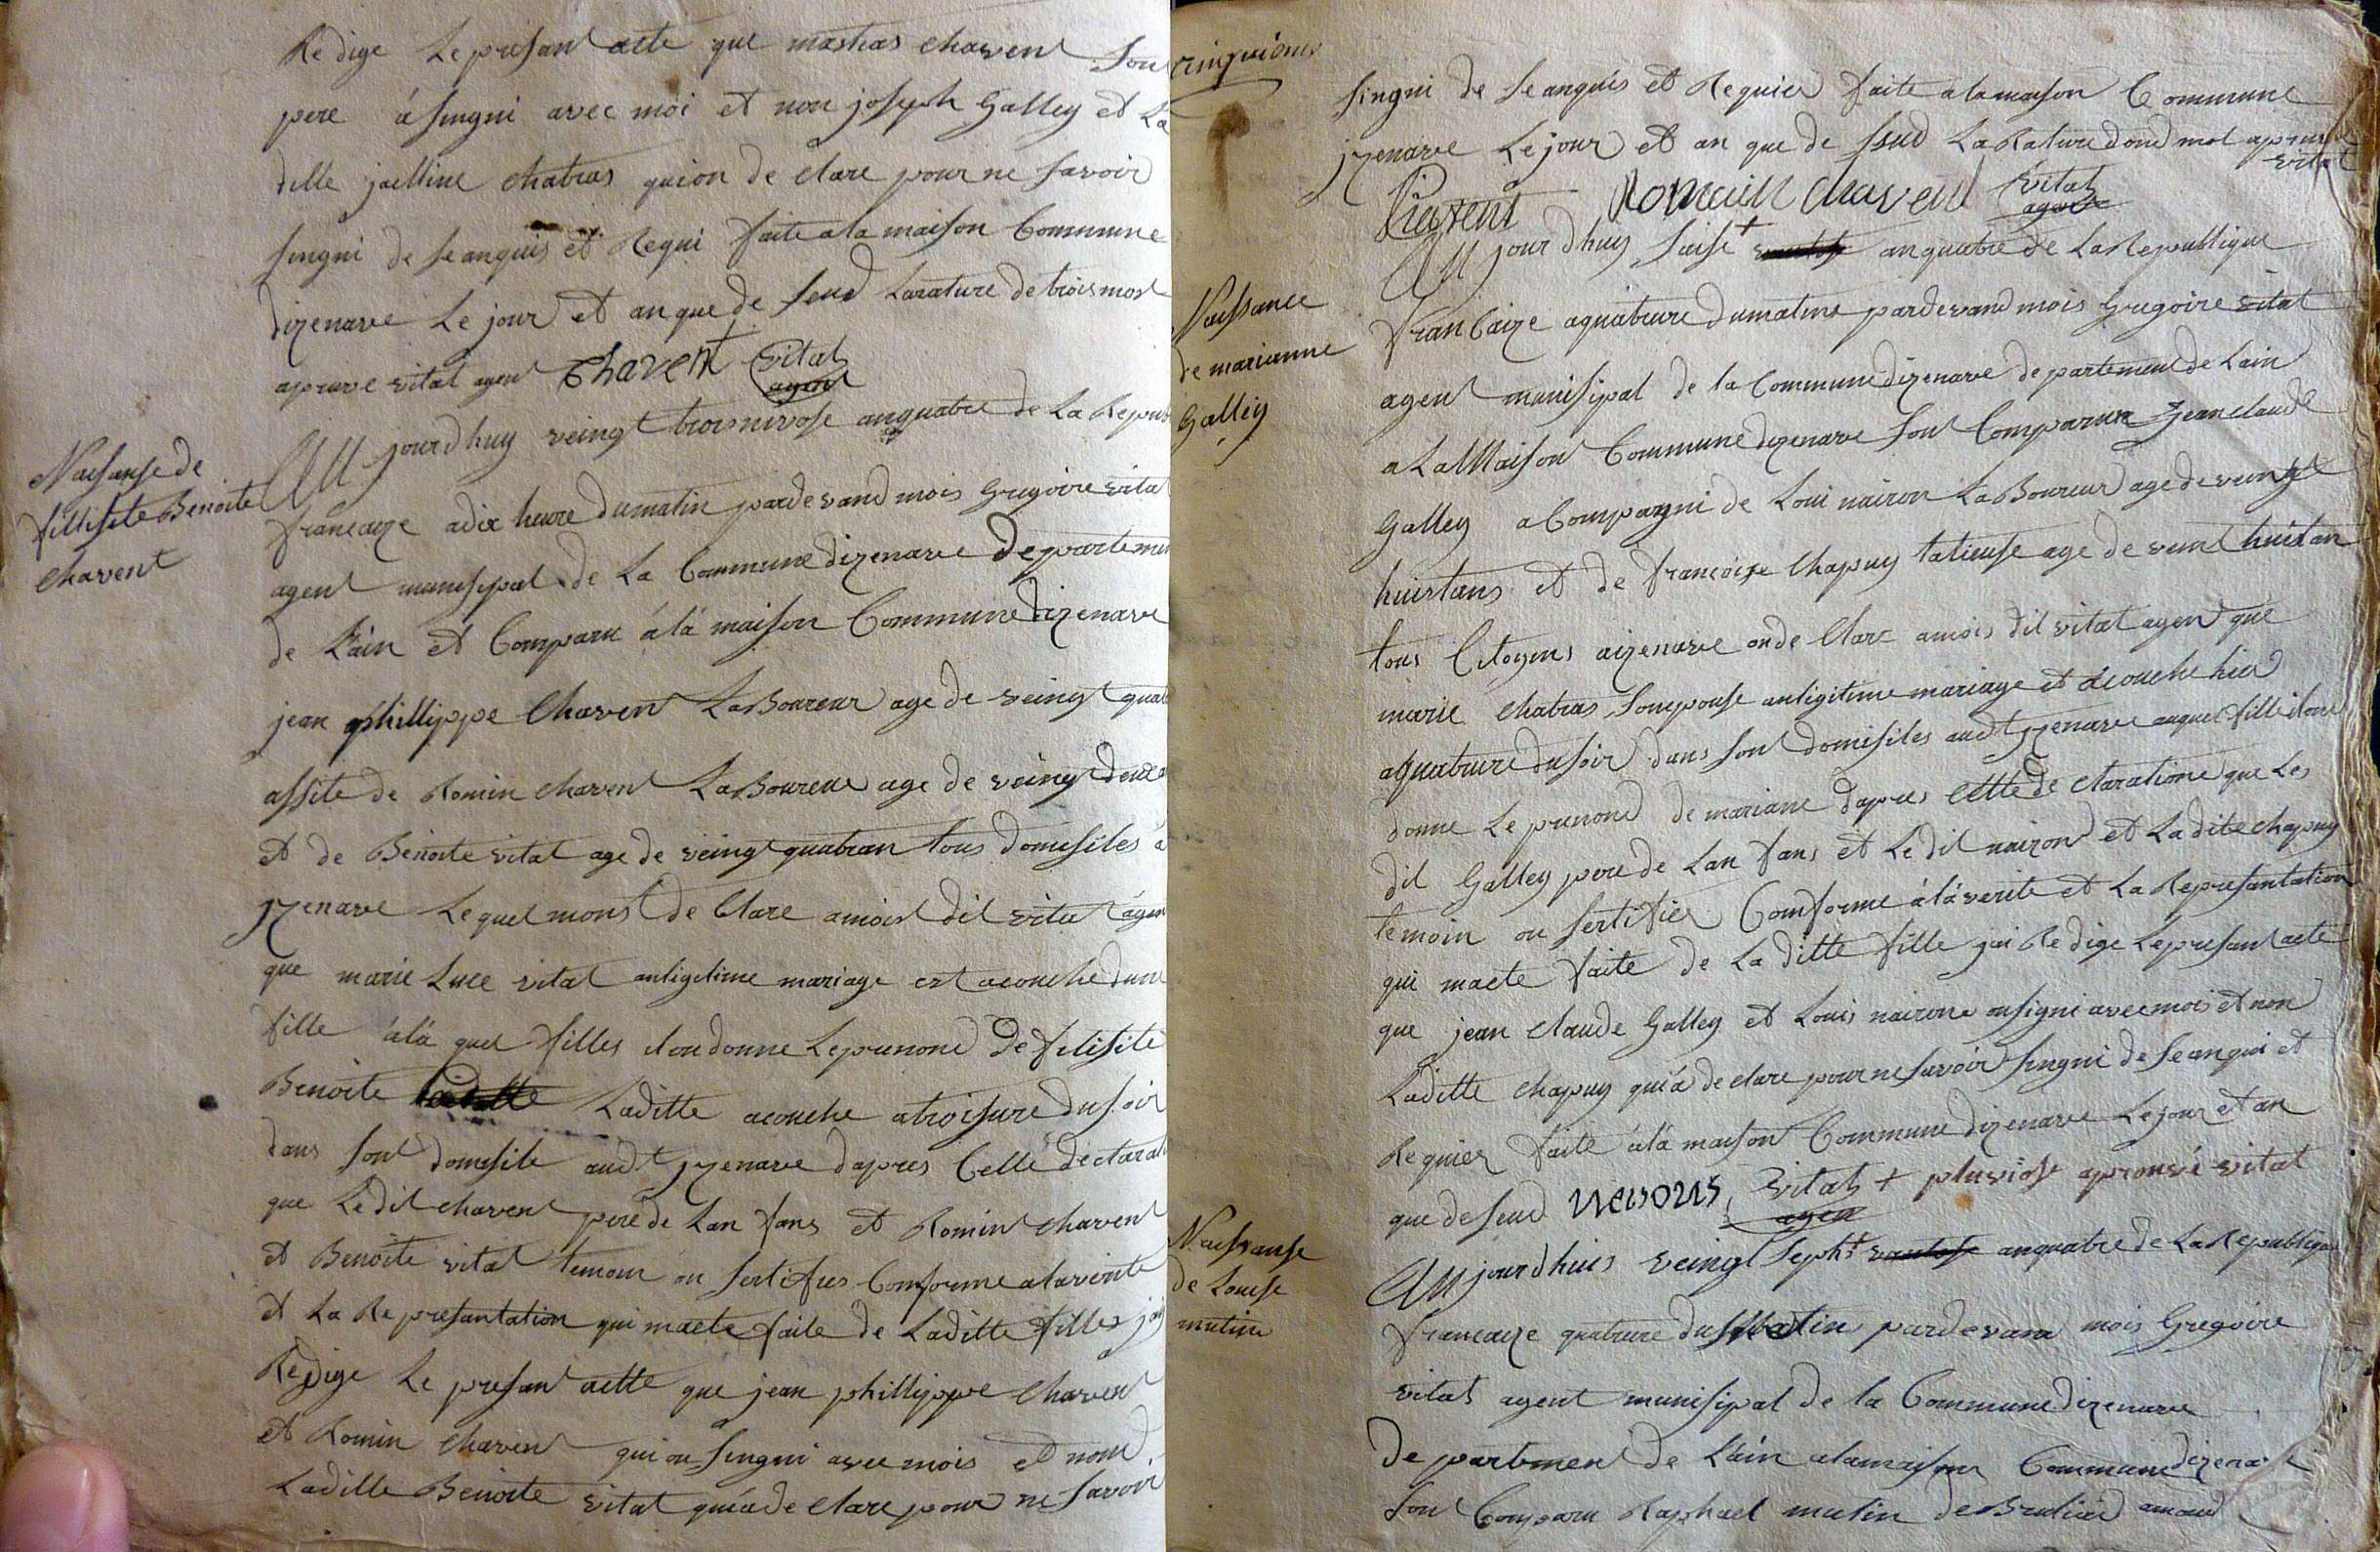 Redige Le presant acte que mathas chavent son
pere á singni avec moi et non joseph Galley et La
ditte jaelline chatras qui on de clare pour ne savoir
singni de se anquis et Requi faite a la maison Commune
dizenave Le jour et an que de seud La rature de trois mos
apruve vital agen Chavent Vital
agen
Naisanse de
fillisite Benoite
Chavent
Au jourdhuy veingt trois nivose anquatre de La Repub
francaize adix heure dumatin pardevand mois Gregoire vital
agent munisipal de La Commune dizenave Departemen
de Lain et Comparu á lá maison Commune dizenave
jean phillippe Chavent LaBoureur age de veingt quat
assite de Romin chavent LaBoureur age de veingt deux a
et de Benoite vital age de veingt quatran tous domisiles á
yzenave Le quel mons de Clare amois dit vital ágen
que marie Luce vital anligitime mariage est acouche dune
fille álá quel filles ilon donne Le prenond De filisite
Benoite Laditte acouche atroisure dusoir
dans sont domisile audt yzenave dapres Celle déclarati
que Ledit chavent pere de Lan fans et Romin chavent
et Benoite vital temoin on sertifies Comforme alaverite
et La Represantation qui macte faite de Laditte filles jai
Redige Le presan actte que jean phillippe Chavent
et Romin Chavent qui on singni avec mois et nond
Laditte Benoite vital qui á de clare pour ne savoir
cinquieme
singni de se anquis et Requier faite a la maison Commune
yzenave Le jour et an que de ssud La Rature dond mot apruve
vital
Chavent Romain Chavent Vital
agen
Naissance
de marianne
Galley
Au jourdhuy saise + ventose anquatre de La Republique
francaize aquatreure dumatins pardevand mois Gregoire vital
agent munisipal de la Commune dizenave departement de Lain
a La Maison Commune dizenave sont Comparux jean claude
Galley acompagni de Loui nairon LaBoureur age de veingt
huistans et de francoise Chapuy tatieuse age de veint huit an
tous Citoyens aizenave onde Clare amois dit vital agen que
marie chatras sonepouse anligitime mariage et acouche hier
aquatreure dusoir dans sont domisiles audt yzenave auquel fille ilont
donne Le prenond de mariane dapres cette de claratione que Les
dit Galley pere de Lan fans et Le dit nairon et La dite chapuy
temoin on sertifier Comforme á lá verite et La Represantation
qui macte faite de La ditte fille jai Redige Le presant acte
que jean claude Galley et Louis nairone onsigni avec mois et non
Laditte chapuy qui á de clare pour ne savoir singni de se anqui et
Requier faite á lá maison Commune dizenave Le jour et an
que de seud nerons Vital + pluviose aprouvé vital
agen
Naissanse
de Louise
mutin
Au jourdhuis veingt sept + ventose anquatre de La Republique
francaize quatreure du Matin pardevand mois Gregoire
vital agent munisipal de la Commune dizenave
Departement de Lain alamaison Commune dizenave
sont Comparu Raphael mutin